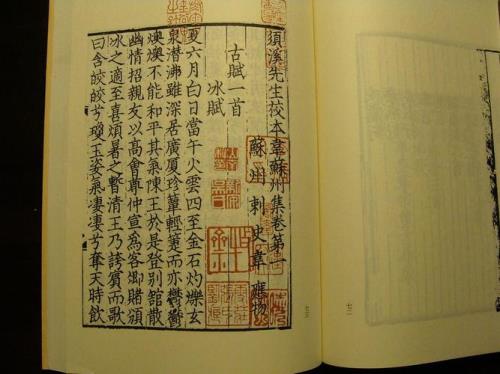 須溪先生校本韋蘇州集卷第一
蘇州刺史韋應物
古賦一首
冰賦
夏六月白日當午火雲四至金石灼爍玄
泉潜沸雖深居廣厦珍簟輕箑而亦鬱鬱
燠燠不能和平其氣陳王於是登別館散
幽情招親友以高會尊仲宣爲客卿賭頒
冰之適至喜煩暑之暫清王乃誇賓而歌
曰含皎皎兮瓊玉姿氣凄凄兮奪天時飲